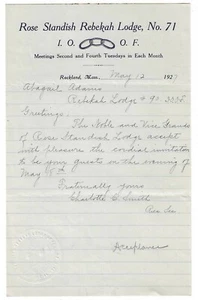 Rose Standish Rebekah Lodge, No. 71
I. O. O. F.
Meetings Second and Fourth Tuesdays in Each Month
Rockland, Mass. May 12 1927
Abagail Adams
Rebekah Lodge #
Greeting.
The Noble and Vice Grands
of Rose Standish Lodge accept
with pleasure the cordial invitation
to be your guests on the evening of
May
Fraternally yours
Charlotte E. Smith
Rec. Sec.